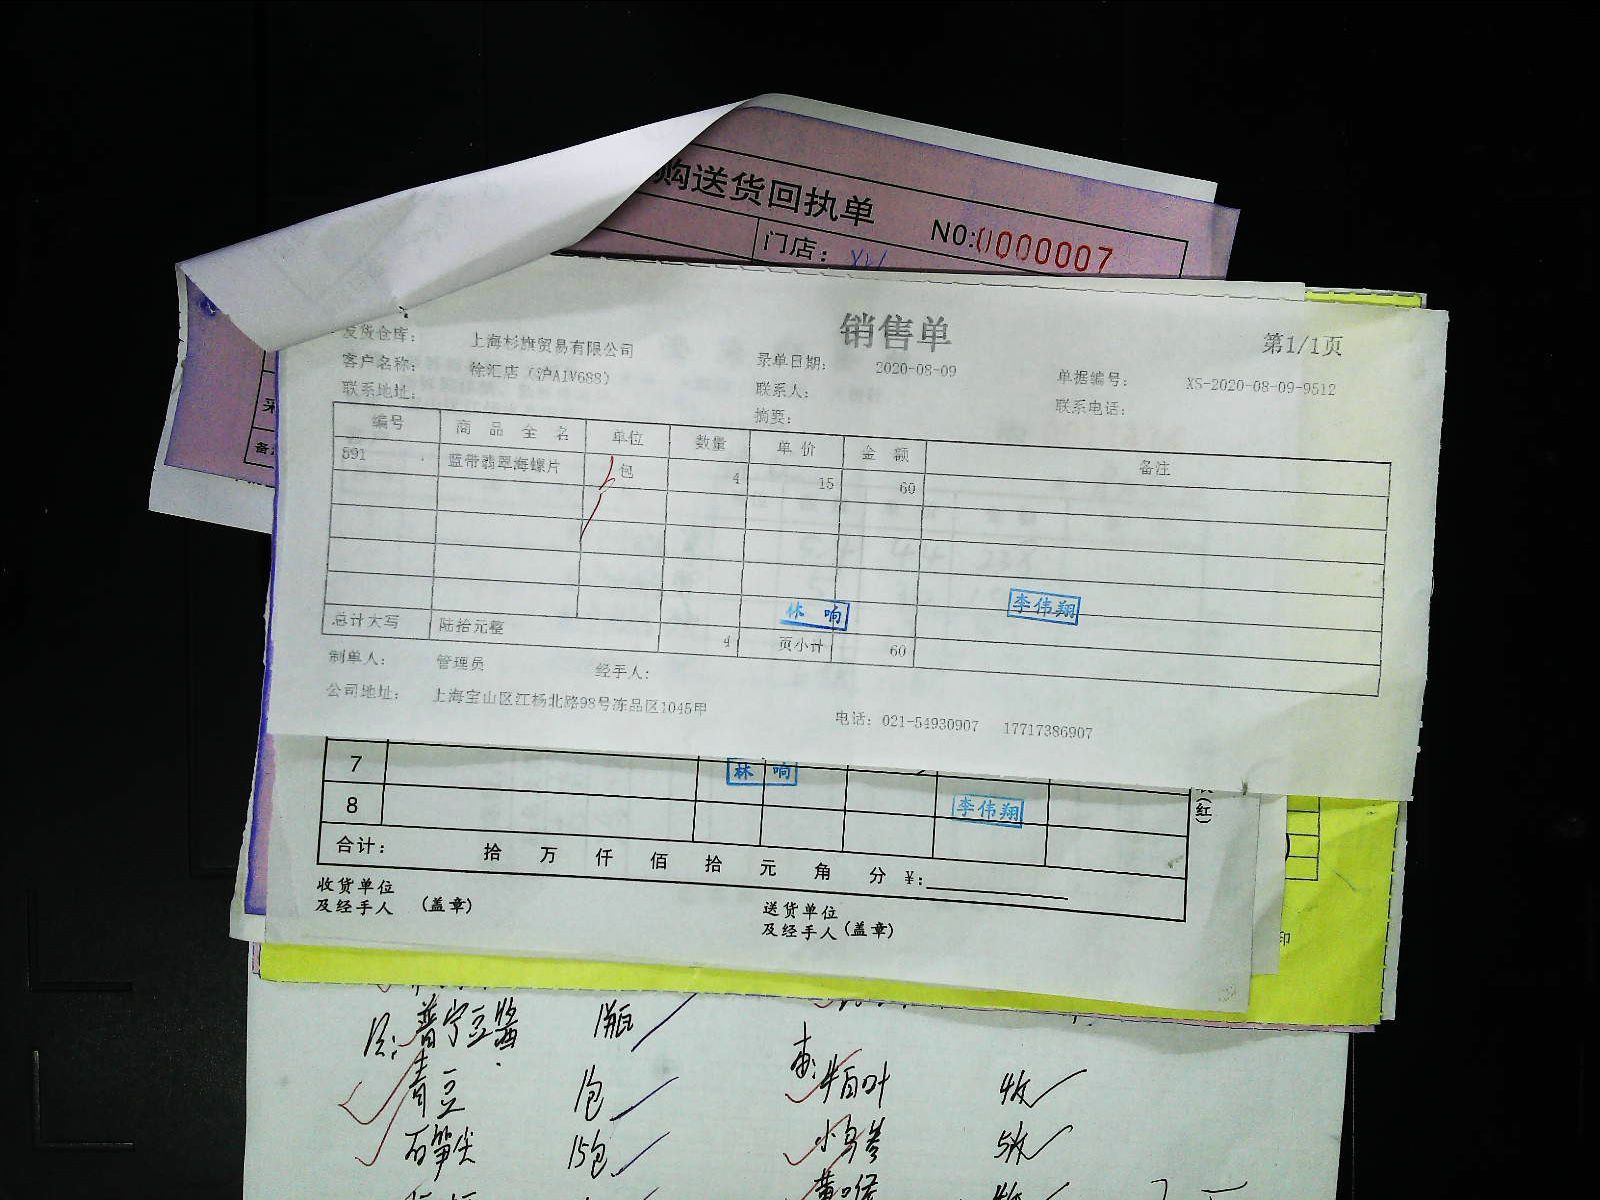 购送货回执单 NO:0000007
门店：
销售单
第1/1页
发货仓库： 上海杉旗贸易有限公司
录单日期： 2020-08-09
单据编号： XS-2020-08-09-9512
客户名称： 徐汇店（沪A1V688）
联系人：
联系电话：
联系地址：
摘要：
编号 商品全名 单位 数量 单价 金额 备注
591 蓝带翡翠海螺片 包 4 15 60
休响 李伟翔
总计大写 陆拾元整 4 页小计 60
制单人： 管理员 经手人：
公司地址： 上海宝山区江杨北路98号冻品区1045甲
电话：021-54930907 17717386907
7
林响
8
李伟翔
(红)
合计： 拾 万 仟 佰 拾 元 角 分 ¥:
收货单位
及经手人 (盖章)
送货单位
及经手人(盖章)
印
普宁豆酱 1瓶
青豆 1包
牛百叶
石笋尖 15包
黄喉